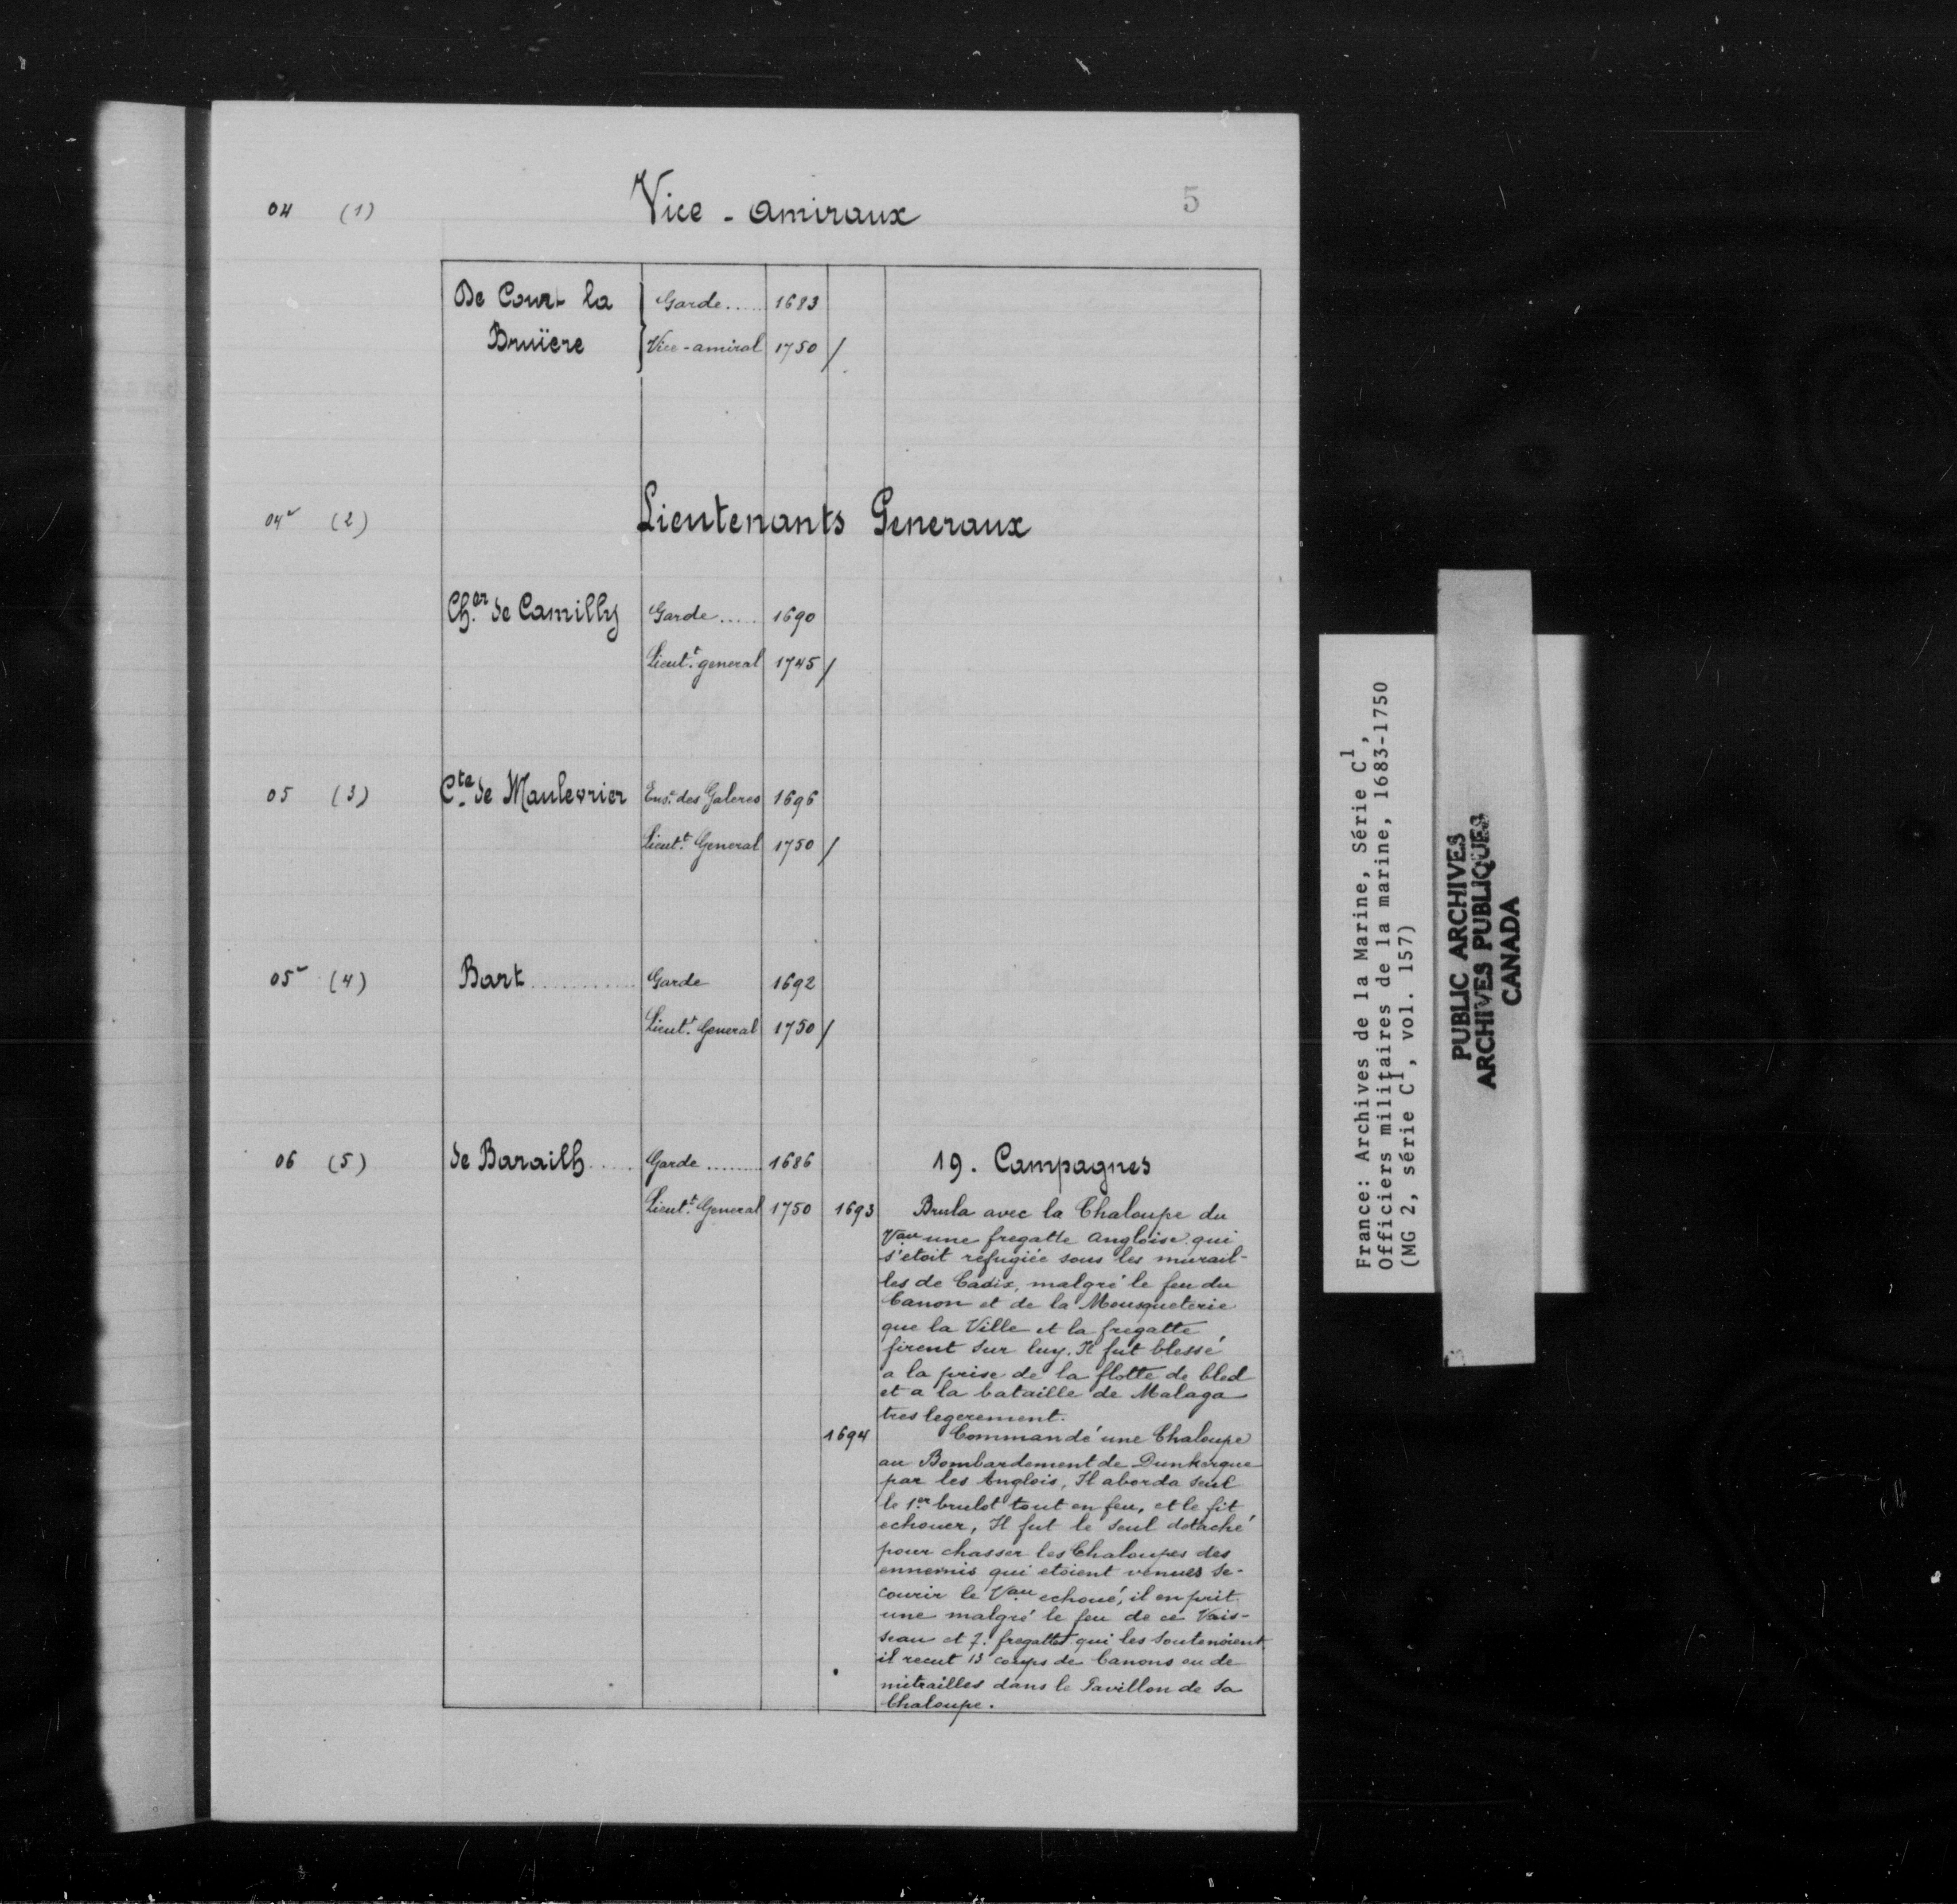 5
04 (1) Vice-amiraux
De Court la Garde..... 1683
Bruïere Vice-amiral 1750 /
04v (2) Lieutenants Generaux
Ch.er de Camilly Garde..... 1690
Lieut.t general 1745 /
05 (3) C.te de Maulevrier Ens.e des Galeres 1696
Lieut.t General 1750 /
05v (4) Bart............ Garde 1692
Lieut.t General 1750 /
06 (5) de Barailh..... Garde......... 1686 19. Campagnes
Lieut.t General 1750 1693 Brula avec la Chaloupe du
V.au une fregatte angloise qui
s'etoit refugiée sous les murail-
les de Cadix, malgré le feu du
Canon et de la Mousqueterie
que la Ville et la fregatte
firent sur luy. Il fut blessé
a la prise de la flotte de bled
et a la bataille de Malaga
tres legerement.
1694 Commandé une Chaloupe
au Bombardement de Dunkerque
par les Anglois, Il aborda seul
le 1.er brulot tout en feu, et le fit
echouer, Il fut le seul detaché
pour chasser les Chaloupes des
ennemis qui etoient venues se-
courir le V.au echoué, il en prit
une malgré le feu de ce Vais-
seau et 7. fregattes qui les soutenoient
il recut 13 coups de Canons ou de
mitrailles dans le Pavillon de sa
Chaloupe.
France: Archives de la Marine, Série C1,
Officiers militaires de la marine, 1683-1750
(MG 2, série C1, vol. 157)
PUBLIC ARCHIVES
ARCHIVES PUBLIQUES
CANADA